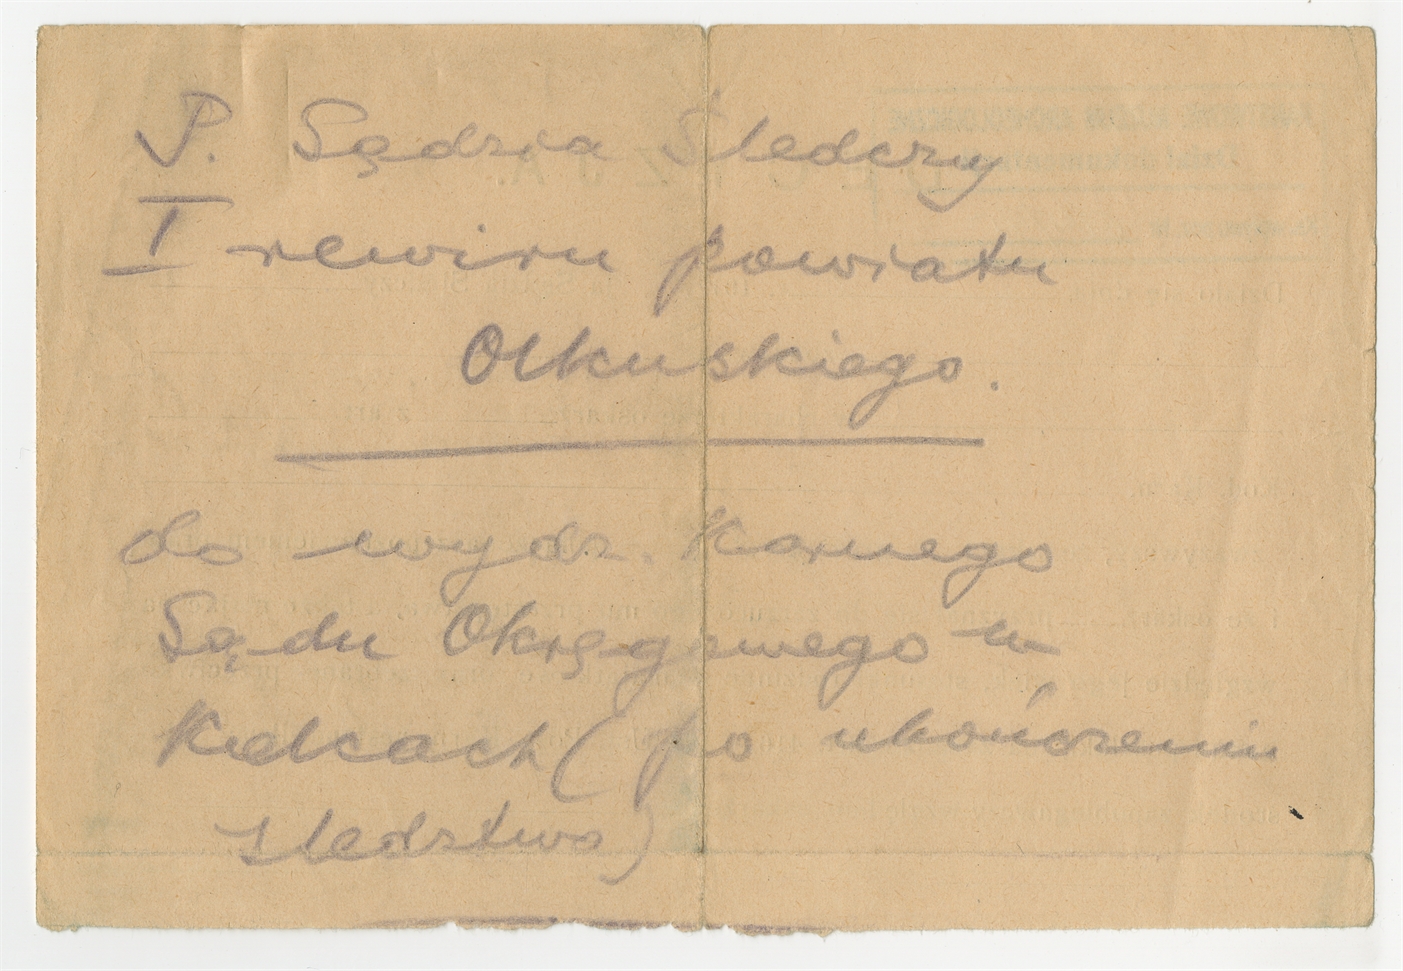 P. Sędzia Śledczy
I rewiru powiatu
Olkuskiego.
do wydz. Karnego
Sądu Okręgowego w
Kielcach (po ukończeniu
śledztwa)